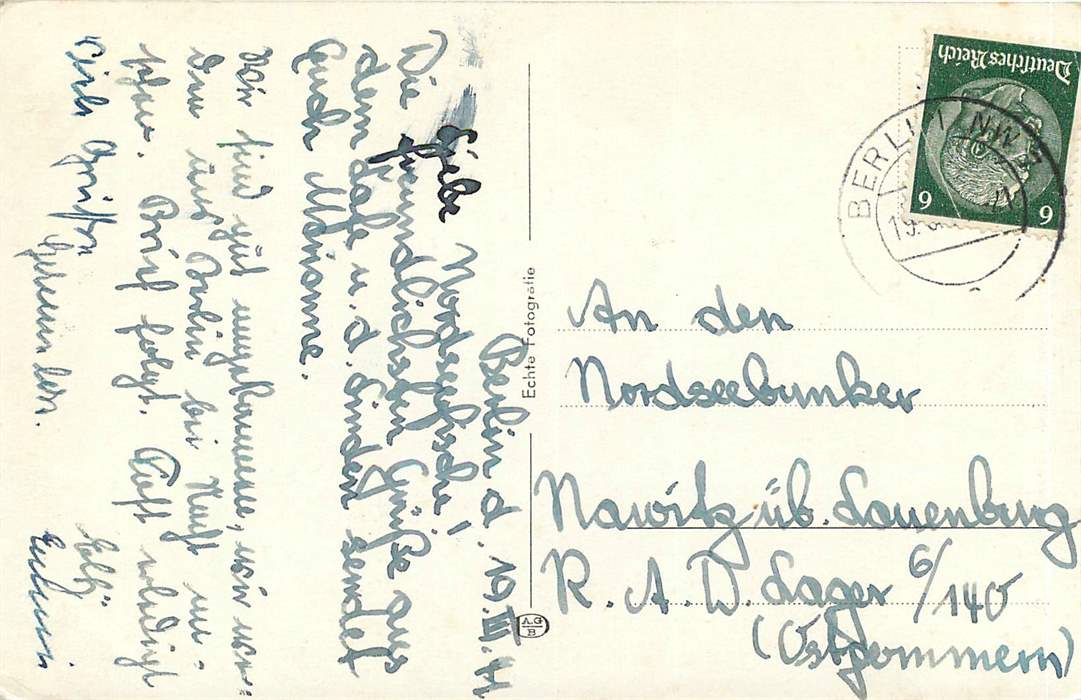 Berlin d. 19. III. 41
Liebe Nordseefische!
Die freundlichsten Grüße aus
dem Café u. d. Linden sendet
Euch Marianne.
Wir sind gut angekommen, wir wer-
den uns Berlin bei Nacht an-
sehen. Brief folgt.
Viele Grüße
An den
Nordseebunker
Nawitz üb. Lauenburg
R. A. D. Lager 6/140
(Ostpommern)
Echte Fotografie
A.G.
B
Deutsches Reich
6 6
BERLIN NW
19.